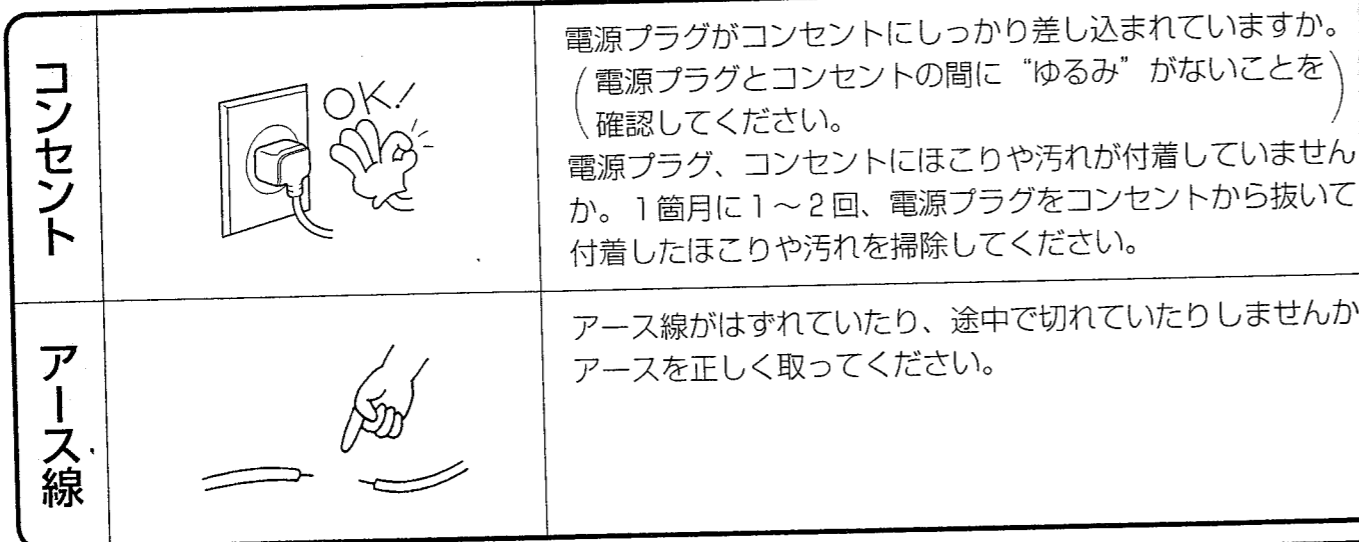 コンセント
OK!
電源プラグがコンセントにしっかり差し込まれていますか。
(電源プラグとコンセントの間に“ゆるみ”がないことを
確認してください。)
電源プラグ、コンセントにほこりや汚れが付着していません
か。1箇月に1～2回、電源プラグをコンセントから抜いて
付着したほこりや汚れを掃除してください。
アース線
アース線がはずれていたり、途中で切れていたりしませんか
アースを正しく取ってください。